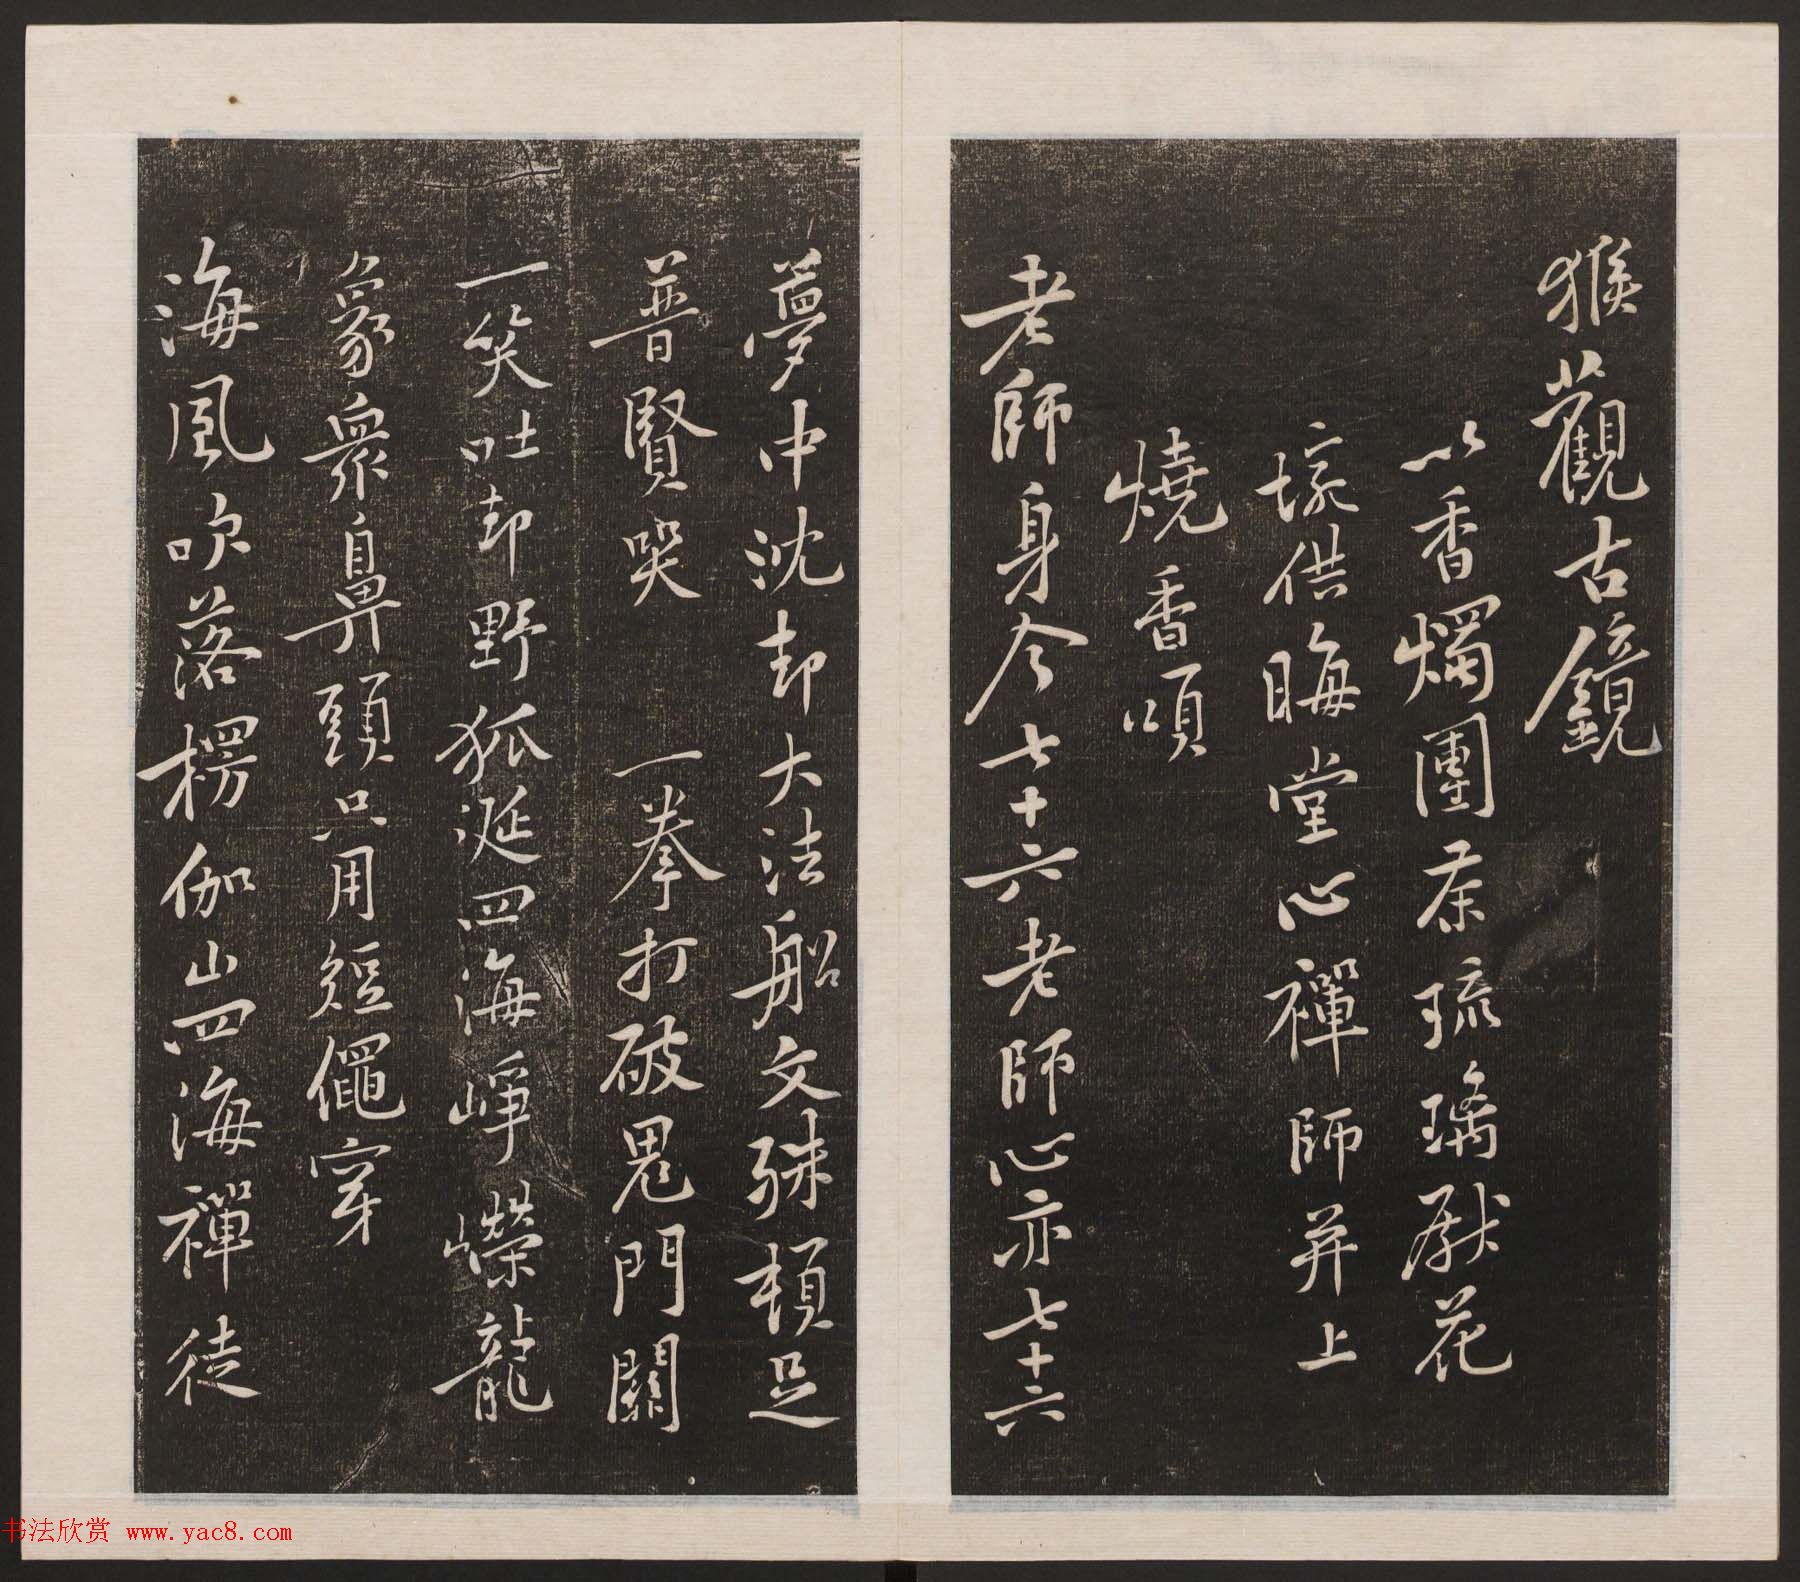 猴觀古鏡
以香燭團茶琉璃獻花
㙇供晦堂心禪師并上
燒香頌
老師身今七十六老師心亦七十六
夢中沈却大法船文殊頓足
普賢哭 一拳打破鬼門關
一笑吐却野狐涎四海崢嶸龍
象衆鼻頭只用短繩穿
海風吹落楞伽山四海禪徒
书法欣赏 www.yac8.com